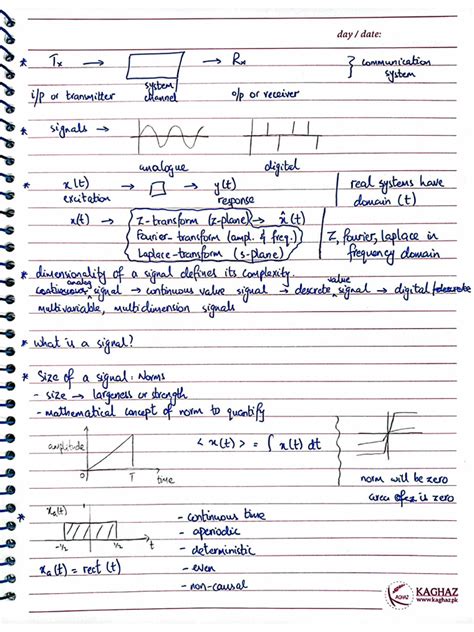 day / date:
* Tx → → Rx } communication system
i/p or transmitter system channel o/p or receiver
* signals →
analogue digital
* x(t) → → y(t) real systems have
excitation response domain (t)
x(t) → Z-transform (z-plane) → x̂(t)
Fourier-transform (ampl. & freq.) Z, Fourier, Laplace in
Laplace-transform (s-plane) frequency domain
* dimensionality of a signal defines its complexity.
analog value
signal → continuous value signal → discrete signal → digital/discrete
multivariable, multidimension signals
* what is a signal?
* Size of a signal: Norms
- size → largeness or strength
- mathematical concept of norm to quantify
amplitude < x(t) > = ∫ x(t) dt
0 T time norm will be zero
area is zero
* xa(t) - continuous time
- aperiodic
-1/2 1/2 t - deterministic
xa(t) = rect (t) - even
- non-causal
KAGHAZ
KAGHAZ
www.kaghaz.pk